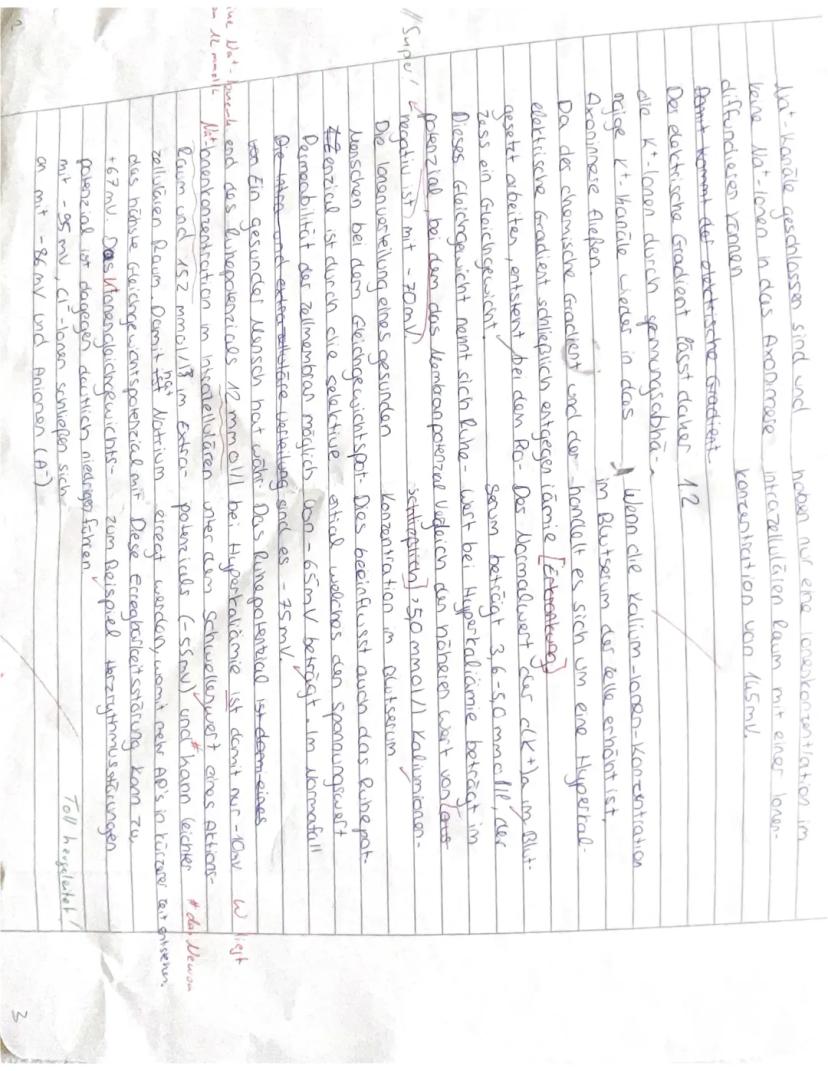 Na⁺ Kanäle geschlossen sind und
keine Na⁺-Ionen in das Axoninnere
diffundieren können
Damit kommt der elektrische Gradient
Der elektrische Gradient lässt daher
die K⁺-Ionen durch spannungsabhä-
ngige K⁺-Kanäle wieder in das
Axoninnere fließen.
Da der chemische Gradient und der
elektrische Gradient schließlich entgegen
gesetzt arbeiten, entsteht bei dem Pro-
zess ein Gleichgewicht.
Dieses Gleichgewicht nennt sich Ruhe-
potenzial, bei dem das Membranpotenzial
// Super! negativ ist mit -70mV.
Die Ionenverteilung eines gesunden
Menschen bei dem Gleichgewichtspot-
enzial ist durch die selektive
Permeabilität der Zellmembran möglich.
Die intra und extrazelluläre Verteilung
Ein gesunder Mensch hat währ-
end des Ruhepotenzials 12 mmol/l
Na⁺-Ionenkonzentration im Intrazellulären
Raum und 152 mmol/l im Extra-
zellulären Raum. Damit hat Natrium
das höchste Gleichgewichtspotenzial mit
+67mV. Das Ionengleichgewichts-
potenzial ist dagegen deutlich niedriger
mit -95 mV, Cl⁻-Ionen schließen sich
an mit -86 mV und Anionen (A⁻)
haben nur eine Ionenkonzentration im
intrazellulären Raum mit einer Ionen-
konzentration von 145 mV.
12
Wenn die Kalium-Ionen-Konzentration
im Blutserum der Zelle erhöht ist,
handelt es sich um eine Hyperkal-
iämie [Erkrankung]
Der Normalwert der c(K⁺)a im Blut-
serum beträgt 3,6-5,0 mmol/l, der
Wert bei Hyperkaliämie beträgt im
Vergleich den höheren Wert von
schließlich >5,0 mmol/l Kaliumionen-
konzentration im Blutserum
Dies beeinflusst auch das Ruhepot-
ential welches den Spannungswert
von -65mV beträgt. Im Normalfall
sind es -75mV.
Das Ruhepotential ist
bei Hyperkaliämie ist damit nur -10mV W liegt
unter dem Schwellenwert eines Aktions-
potenzials (-55mV) und # kann leichter # das Neuron
erregt werden, womit mehr AP's in kürzerer Zeit entstehen.
Diese Erregbarkeitsstörung kann zu,
zum Beispiel Herzrythmusstörungen
führen
Toll hergeleitet!
3